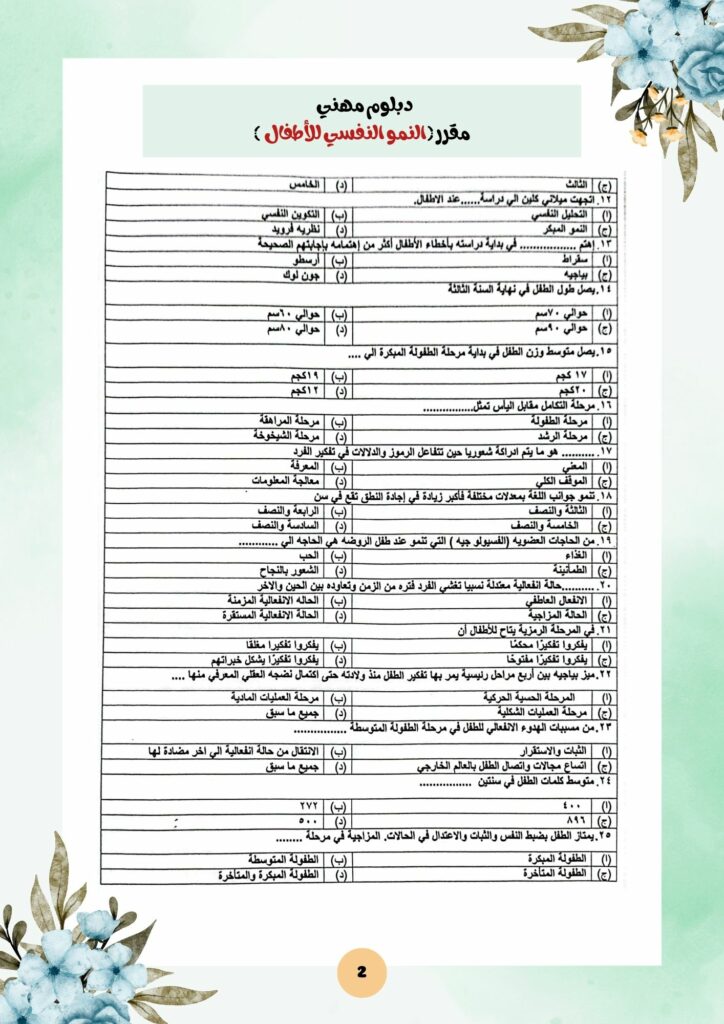 دبلوم مهني
مقرر (النمو النفسي للأطفال)
(ج) الثالث (د) الخامس
١٢. اتجهت ميلاني كلين الي دراسة......عند الاطفال.
(أ) التحليل النفسي (ب) التكوين النفسي
(ج) النمو المبكر (د) نظريه فرويد
١٣. إهتم ................. في بداية دراسته بأخطاء الأطفال أكثر من إهتمامه بإجابتهم الصحيحة
(أ) سقراط (ب) أرسطو
(ج) بياجيه (د) جون لوك
١٤. يصل طول الطفل في نهاية السنة الثالثة
(أ) حوالي ٧٠سم (ب) حوالي ٦٠سم
(ج) حوالي ٩٠سم (د) حوالي ٨٠سم
١٥. يصل متوسط وزن الطفل في بداية مرحلة الطفولة المبكرة الي ....
(أ) ١٧ كجم (ب) ١٩كجم
(ج) ٢٠كجم (د) ١٢كجم
١٦. مرحلة التكامل مقابل اليأس تمثل................
(أ) مرحلة الطفولة (ب) مرحلة المراهقة
(ج) مرحلة الرشد (د) مرحلة الشيخوخة
١٧. .......... هو ما يتم ادراكة شعوريا حين تتفاعل الرموز والدلالات في تفكير الفرد
(أ) المعني (ب) المعرفة
(ج) الموقف الكلي (د) معالجة المعلومات
١٨. تنمو جوانب اللغة بمعدلات مختلفة فأكبر زيادة في إجادة النطق تقع في سن
(أ) الثالثة والنصف (ب) الرابعة والنصف
(ج) الخامسة والنصف (د) السادسة والنصف
١٩. من الحاجات العضويه (الفسيولو جيه ) التي تنمو عند طفل الروضه هي الحاجه الي ............
(أ) الغذاء (ب) الحب
(ج) الطمأنينة (د) الشعور بالنجاح
٢٠. ..........حالة انفعالية معتدلة نسبيا تغشي الفرد فتره من الزمن وتعاوده بين الحين والاخر
(أ) الانفعال العاطفي (ب) الحاله الانفعالية المزمنة
(ج) الحالة المزاجية (د) الحالة الانفعالية المستقرة
٢١. في المرحلة الرمزية يتاح للأطفال أن
(أ) يفكروا تفكيرًا محكمًا (ب) يفكروا تفكيرا مغلقا
(ج) يفكروا تفكيرًا مفتوحًا (د) يفكروا تفكيرًا يشكل خبراتهم
٢٢. ميز بياجيه بين أربع مراحل رئيسية يمر بها تفكير الطفل منذ ولادته حتى اكتمال نضجه العقلي المعرفي منها ....
(أ) المرحلة الحسية الحركية (ب) مرحلة العمليات المادية
(ج) مرحلة العمليات الشكلية (د) جميع ما سبق
٢٣. من مسببات الهدوء الانفعالي للطفل في مرحلة الطفولة المتوسطة ................
(أ) الثبات والاستقرار (ب) الانتقال من حالة انفعالية الي اخر مضادة لها
(ج) اتساع مجالات واتصال الطفل بالعالم الخارجي (د) جميع ما سبق
٢٤. متوسط كلمات الطفل في سنتين ................
(أ) ٤٠٠ (ب) ٢٧٢
(ج) ٨٩٦ (د) ٥٠٠
٢٥. يمتاز الطفل بضبط النفس والثبات والاعتدال في الحالات. المزاجية في مرحلة ........
(أ) الطفولة المبكرة (ب) الطفولة المتوسطة
(ج) الطفولة المتأخرة (د) الطفولة المبكرة والمتأخرة
2